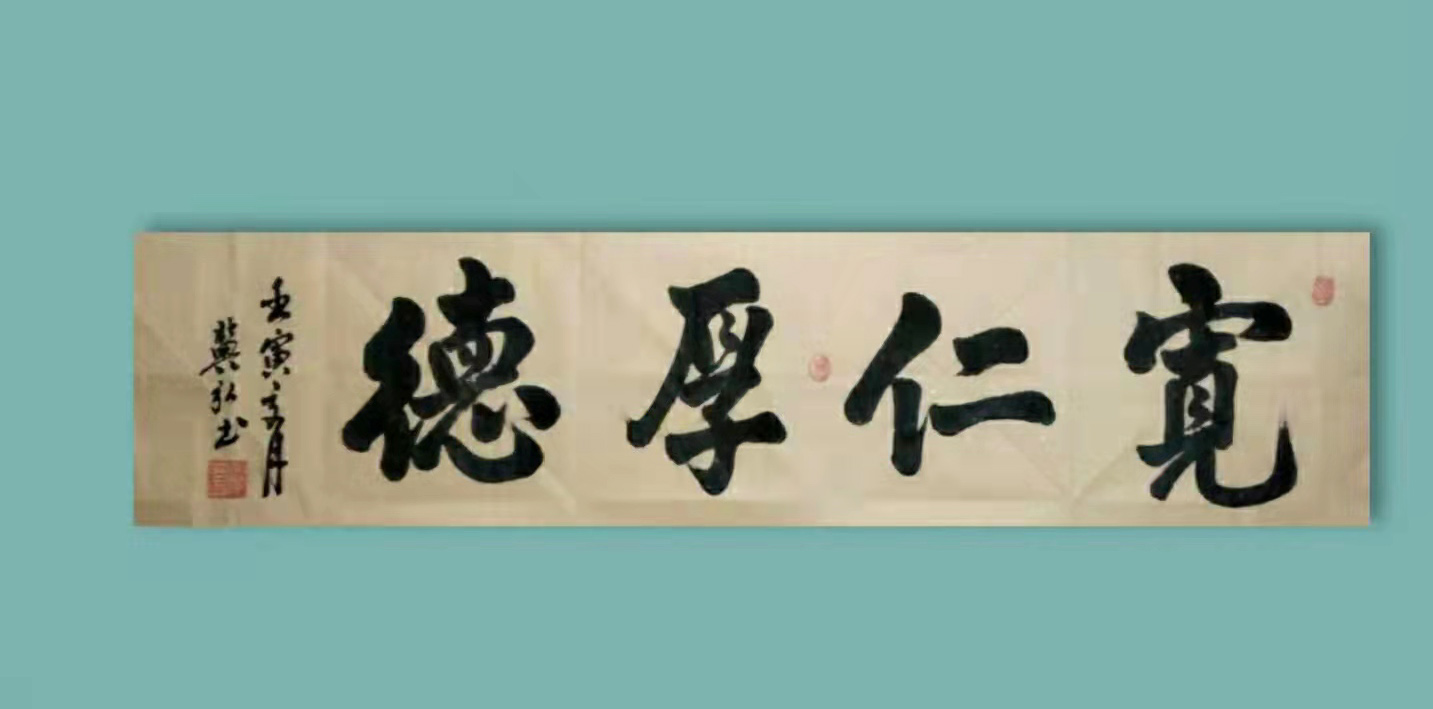 寬仁厚德
壬寅之月
冀弘书